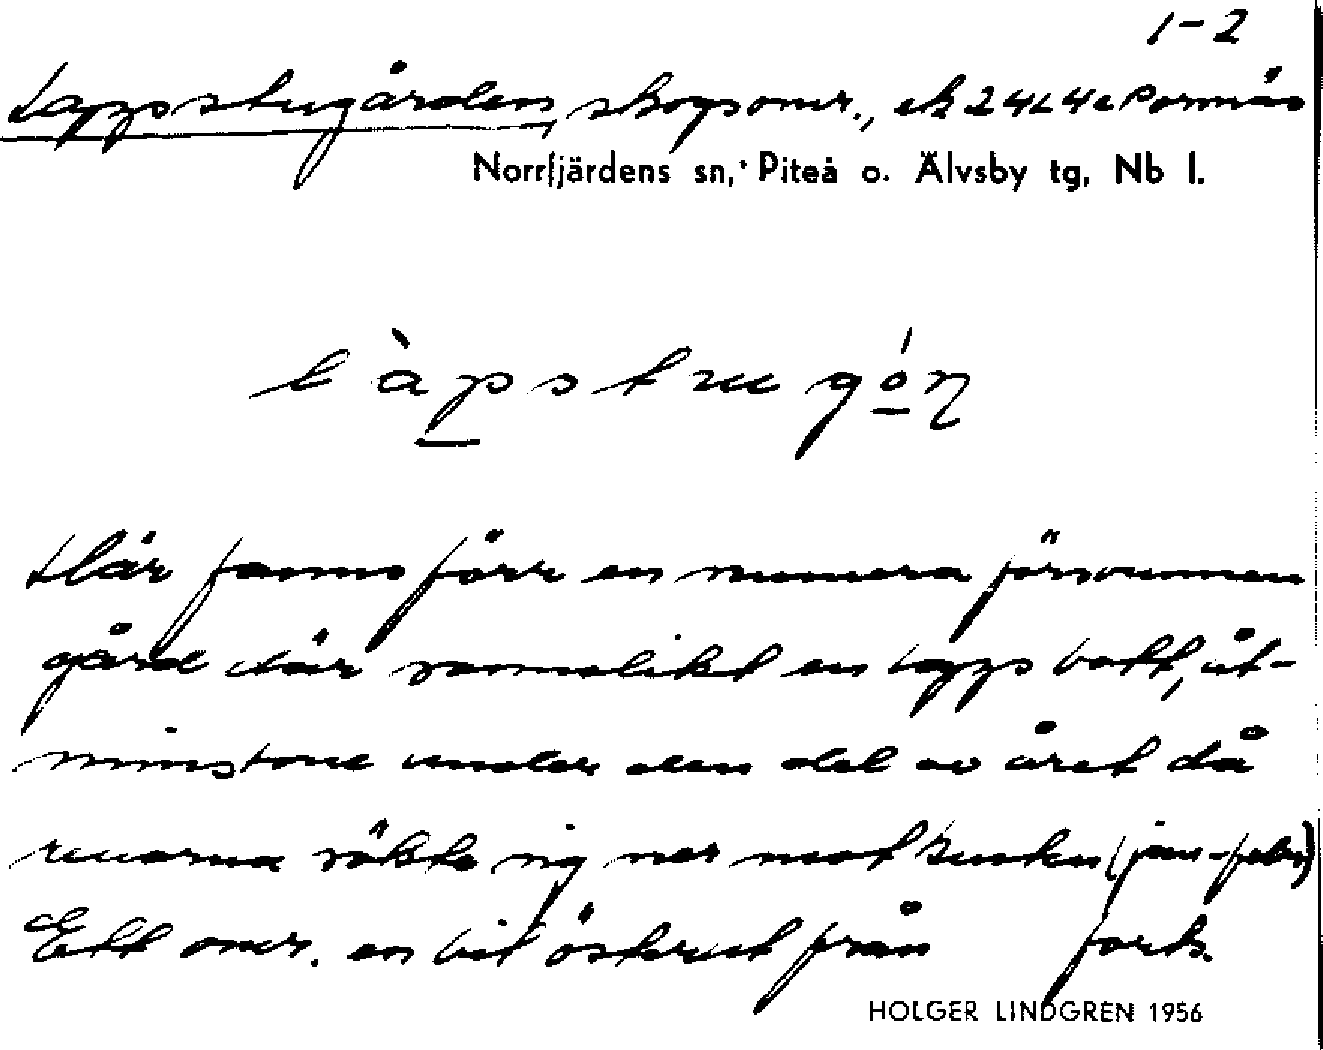 1-2
Lappstugården, skogsomr., ek 24L4e Pormäs
Norrfjärdens sn, Piteå o. Älvsby tg, Nb l.
làpstugón
Här fanns förr en numera försvunnen
gård där sannolikt en lapp bott, åt-
minstone under den del av året då
renarna sökte sig ner mot kusten (jan-febr)
Ett omr. en bit österut från forts.
HOLGER LINDGREN 1956